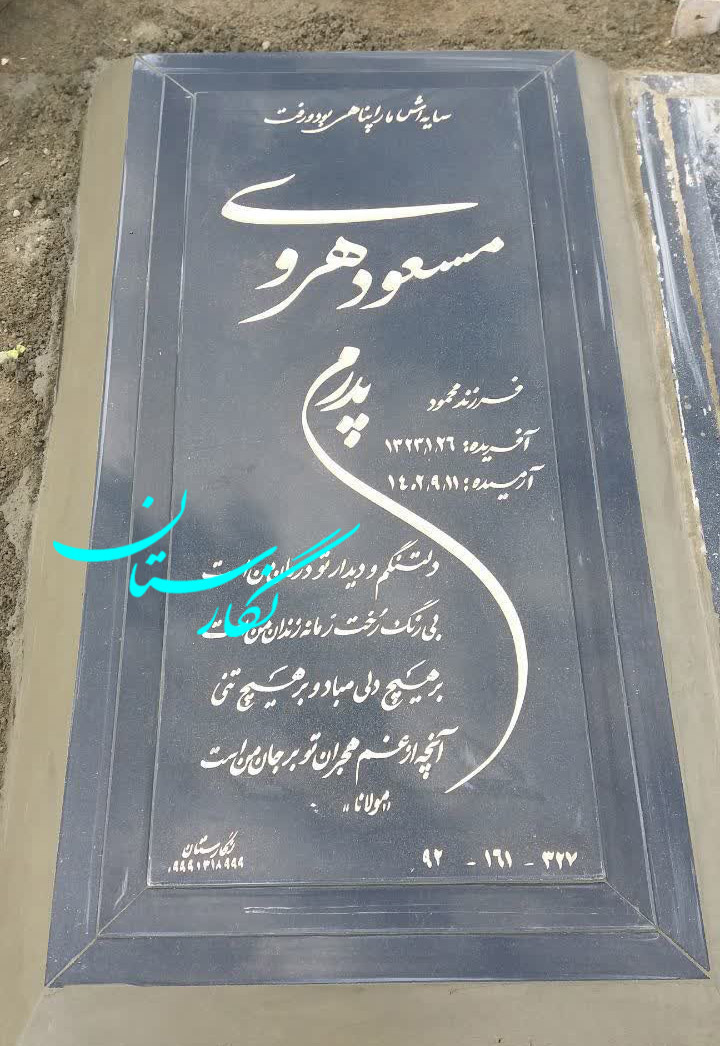 سایه‌اش ما را پناهی بود و رفت
مسعود هروی
پدرم
فرزند محمود
آفریده: ۱۳۲۳،۱،۲۶
آرمیده: ۱۴۰۲،۹،۱۱
دلتنگم و دیدار تو درمان من است
بی رنگ رُخت زمانه زندان من است
بر هیچ دلی مباد و بر هیچ تنی
آنچه از غم هجران تو بر جان من است
«مولانا»
۳۲۷ - ۱۶۱ - ۹۲
نگارستان
۰۹۹۱۳۱۸۹۹۹
نگارستان